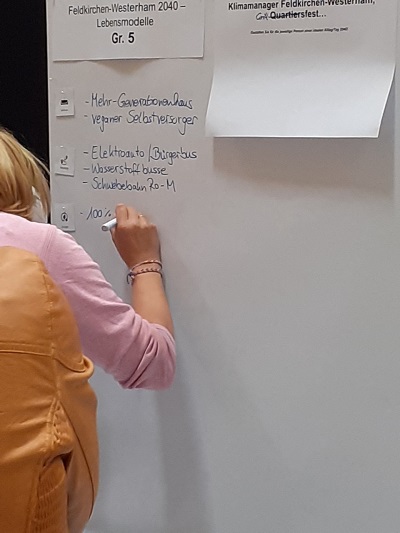 Feldkirchen-Westerham 2040 –
Lebensmodelle
Gr. 5
Klimamanager Feldkirchen-Westerham,
Quartiersfest...
- Mehr-Generationenhaus
- veganer Selbstversorger
- Elektroauto / Bürgerbus
- Wasserstoffbusse
- Schwebebahn Ro-M
- 100%